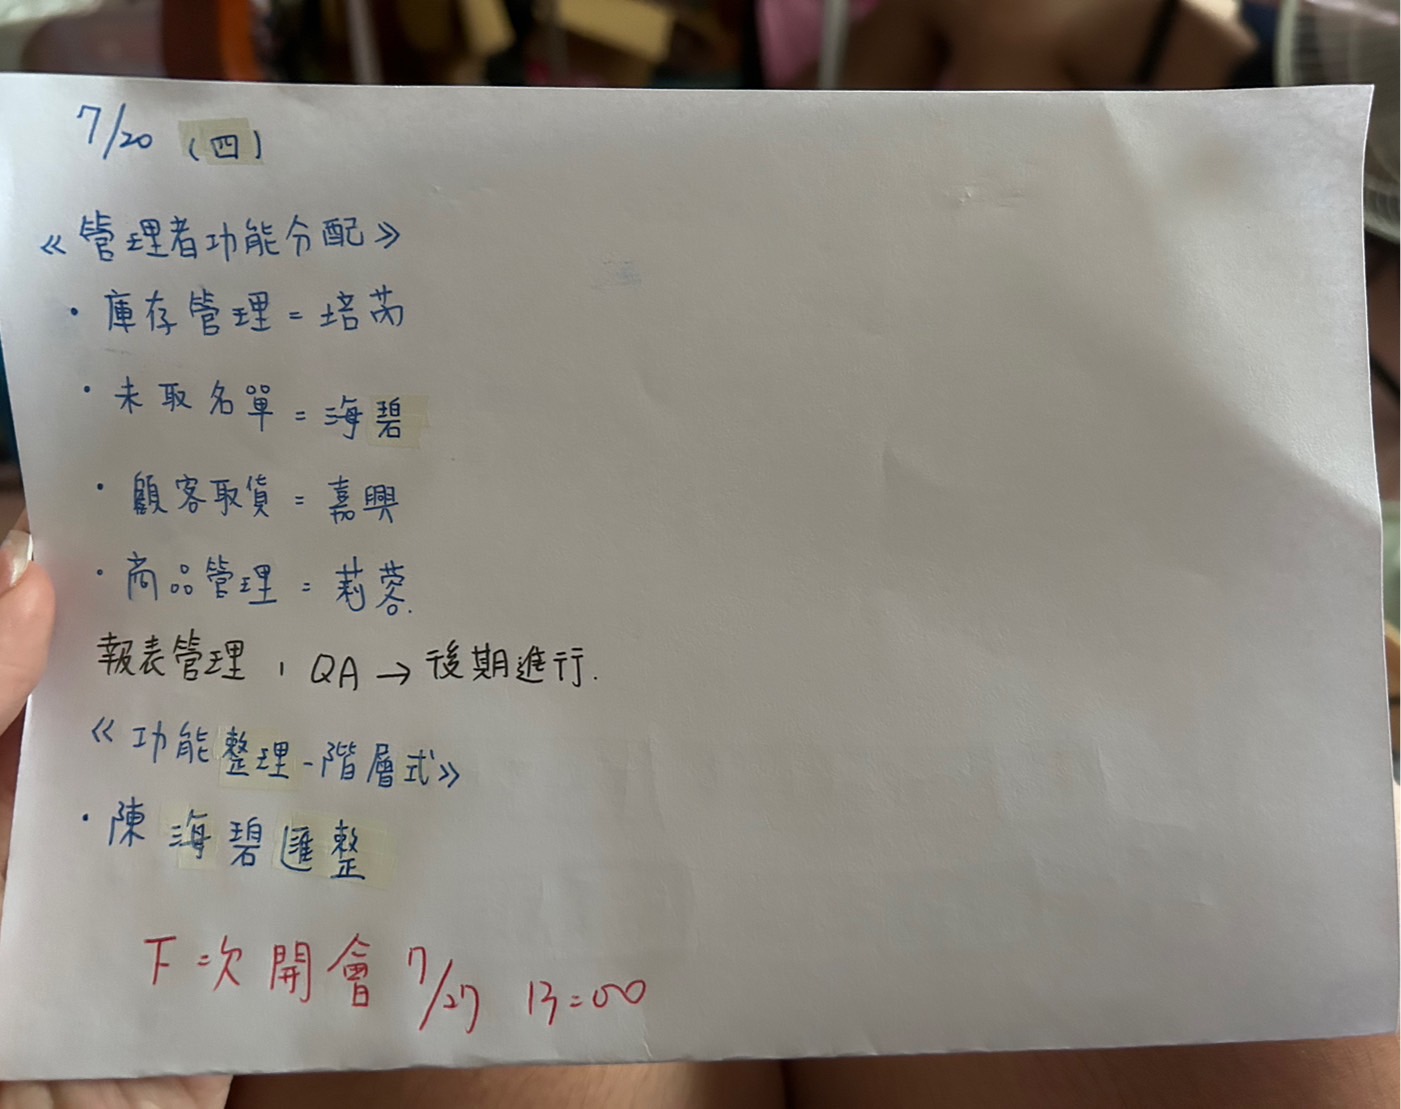 7/20 (四)
《管理者功能分配》
·庫存管理=培芮
·未取名單=海碧
·顧客取貨=嘉興
·商品管理=莉蓉.
報表管理,QA→後期進行.
《功能整理-階層式》
·陳海碧匯整
下次開會 7/27 13:00